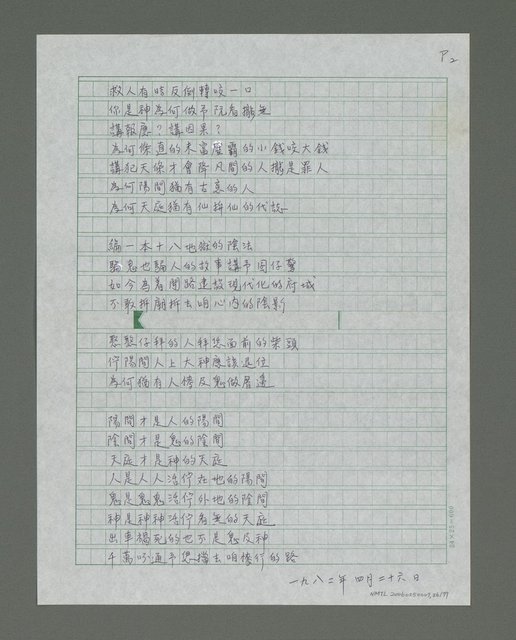 P2
救人有時反倒轉咬一口
你是神為何做予阮看攏無
講報應？講因果？
為何條直的未富壓霸的小錢咬大錢
講犯天條才會降凡間的人攏是罪人
為何陽間猶有古意的人
為何天庭猶有仙拼仙的代誌
編一本十八地獄的陰法
騙鬼也騙人的故事講予囝仔驚
如今為着開路建設現代化的府城
不敢拆廟拆去咱心內的陰影
憨憨仔拜的人拜您面前的柴頭
佇陽間人上大神應該退位
為何猶有人倚反鬼做厝邊
陽間才是人的陽間
陰間才是鬼的陰間
天庭才是神的天庭
人是人人活佇在地的陽間
鬼是鬼鬼活佇外地的陰間
神是神神活佇看無的天庭
出車禍死的也不是鬼反神
千萬呣通予您擋去咱倷行的路
一九八二年 四月二十六日
24×25=600